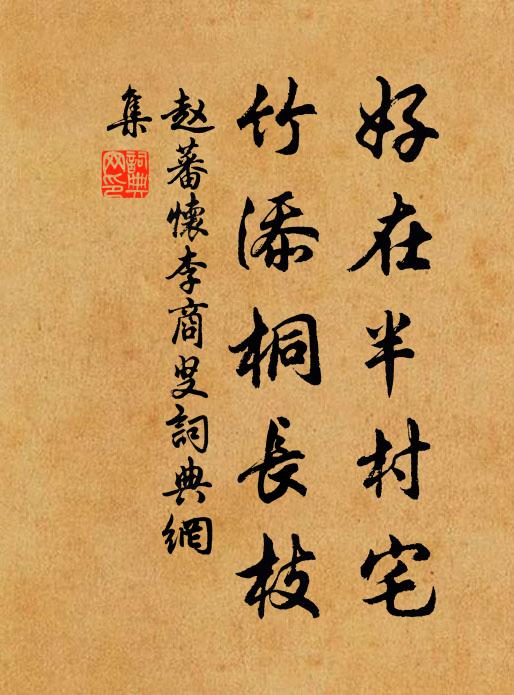 好在半村宅
竹添桐長枝
赵蕃懷李商叟詞典網
集
詞典
网印